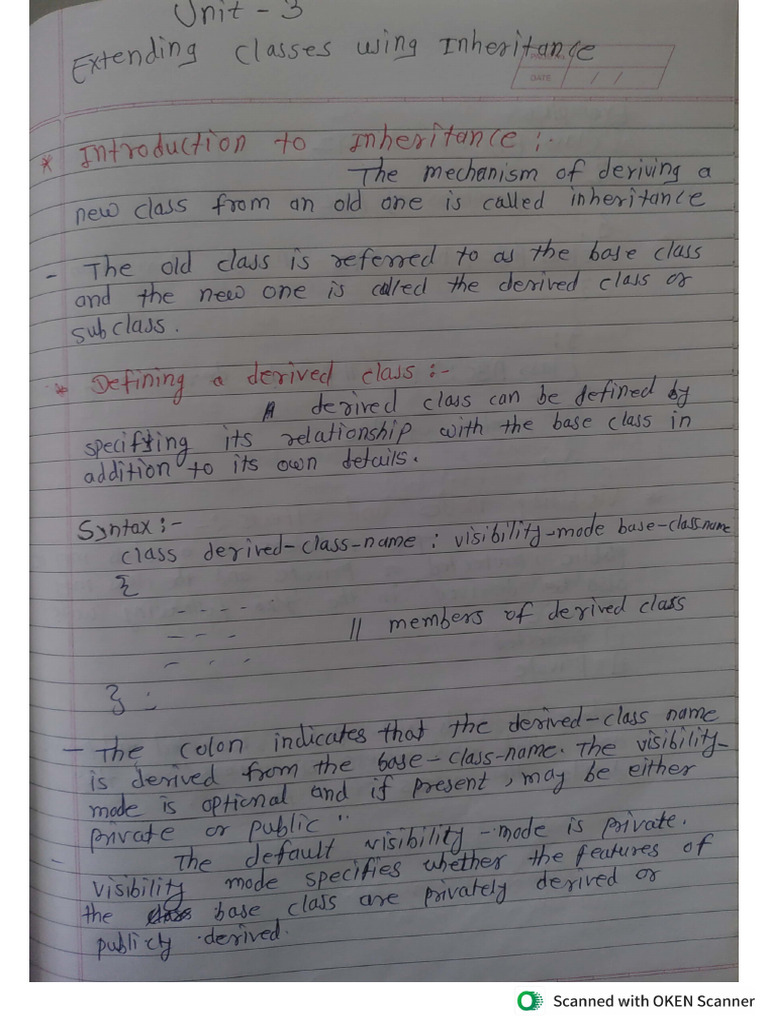 Unit - 3
Extending classes using Inheritance
DATE / /
* Introduction to Inheritance :-
The mechanism of deriving a
new class from an old one is called inheritance
- The old class is referred to as the base class
and the new one is called the derived class or
subclass.
* Defining a derived class :-
A derived class can be defined by
specifying its relationship with the base class in
addition to its own details.
Syntax :-
class derived-class-name : visibility-mode base-classname
{
- - - -
- - - // members of derived class
- - -
} ;
- The colon indicates that the derived-class name
is derived from the base-class-name. The visibility-
mode is optional and if present, may be either
private or public "
- The default visibility-mode is private.
visibility mode specifies whether the features of
the class base class are privately derived or
publicly derived.
Scanned with OKEN Scanner